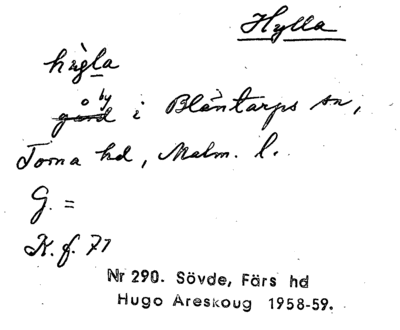 Hylla
hÿgla
o by
gård i Blentarps sn,
Torna hd, Malm. l.
G. =
K. f. 77
Nr 290. Sövde, Färs hd
Hugo Areskoug 1958-59.